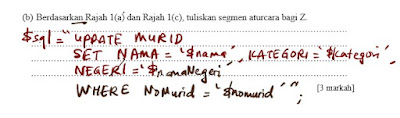 (b) Berdasarkan Rajah 1(a) dan Rajah 1(c), tuliskan segmen aturcara bagi Z.
$sql = " UPDATE MURID
SET NAMA = '$nama', KATEGORI = '$kategori',
NEGERI = '$namaNegeri'
WHERE NoMurid = '$nomurid' ";
[3 markah]